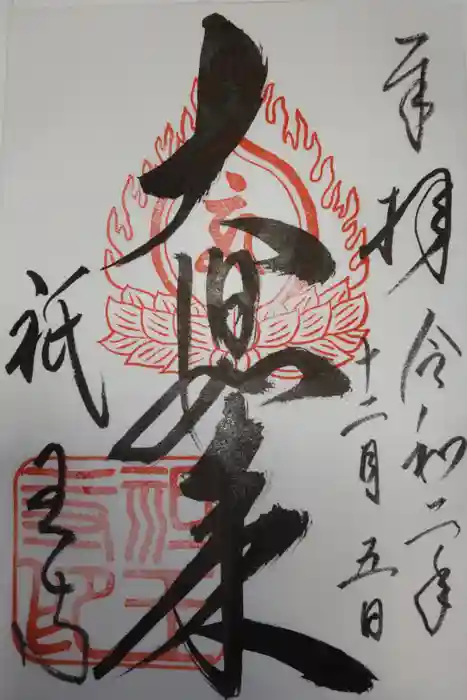 奉拝
令和二年
十二月五日
大日如来
祇王寺